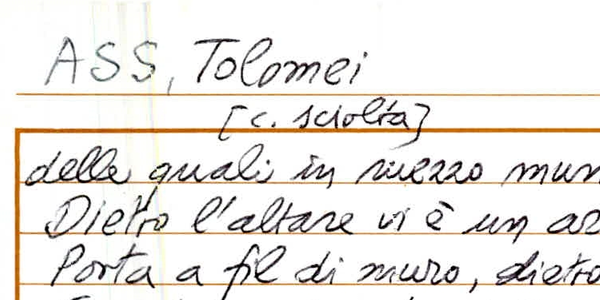 ASS, Tolomei
[c. sciolta]
delle quali in mezzo
Dietro l'altare vi è un
Porta a fil di muro, dietro